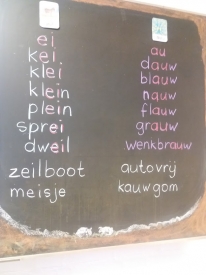 ei
kei
klei
klein
plein
sprei
dweil
zeilboot
meisje
au
dauw
blauw
nauw
flauw
grauw
wenkbrauw
autovrij
kauwgom